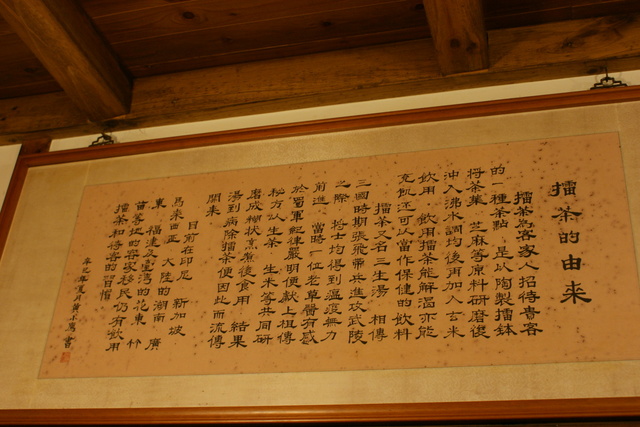 擂茶的由来
擂茶為客家人招待貴客
的一種茶點 是以陶製擂鉢
將茶葉 芝麻等原料研磨後
沖入沸水調均後再加入玄米
飲用 飲用擂茶能解渴亦能
充飢还可以當作保健的飲料
擂茶又名三生湯 相傳
三國時期張飛帶兵進攻武陵
之際 將士均得到溫疫無力
前進 當時一位老草醫有感
於蜀軍紀律嚴明便獻上祖傳
秘方以生茶 生米等共同研
磨成糊狀烹煮後食用 結果
湯到病除擂茶便因此而流傳
開来
目前在印尼 新加坡
馬来西亞 大陸的湖南 廣
東 福建及臺灣的花東 竹
苗等地的客家移民仍有飲用
擂茶和待客的習慣
辛巳年夏月 書